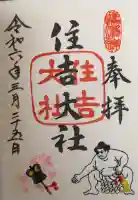 奉拝
住吉大社
令和六年三月二十五日
住吉
大社